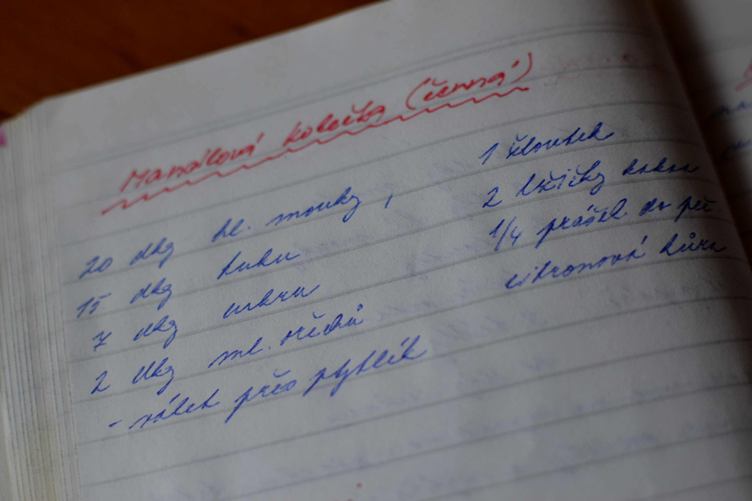 Mandlová kolečka (černá)
20 dkg hl. mouky,
15 dkg tuku
7 dkg cukru
2 dkg ml. ořechů
- nálet přes plytlík
1 žloutek
2 lžičky kakaa
1/4 prášek do peč
citronová kůra